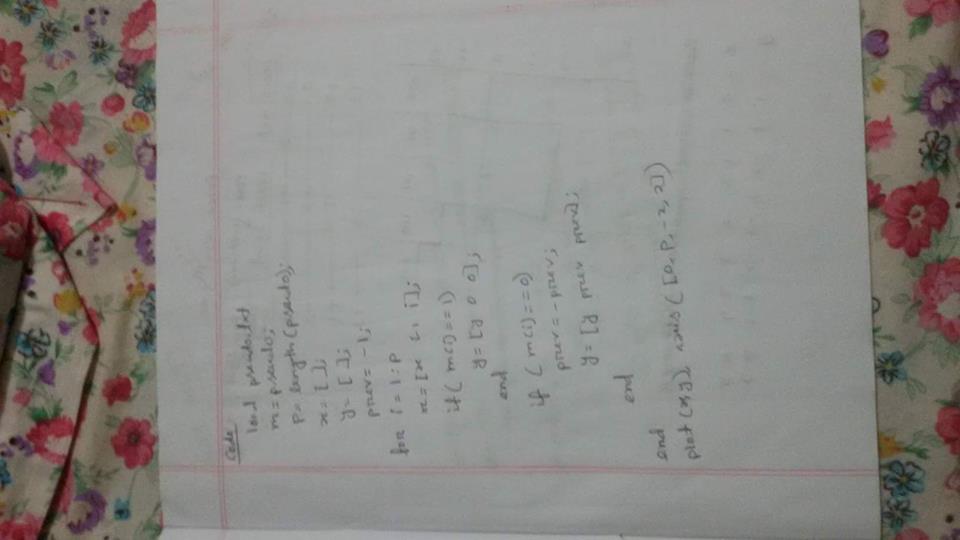 Code:
load pseudo.txt
m = pseudo;
P = length(pseudo);
x = [ ];
y = [ ];
prev = -1;
for i = 1:P
x = [x i-1 i];
if( m(i)==1)
y = [y 0 0];
end
if (m(i)==0)
prev = -prev;
y = [y prev prev];
end
end
plot (x,y), axis([0, P, -2, 2])